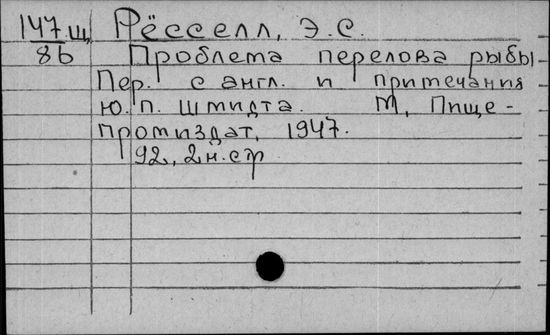 147.щ Рёсселл, Э.С.
86 Проблема перелова рыбы
Пер. с англ. и примечания
Ю.П. Шмидта. М, Пище-
промиздат, 1947.
92, 2 н.стр